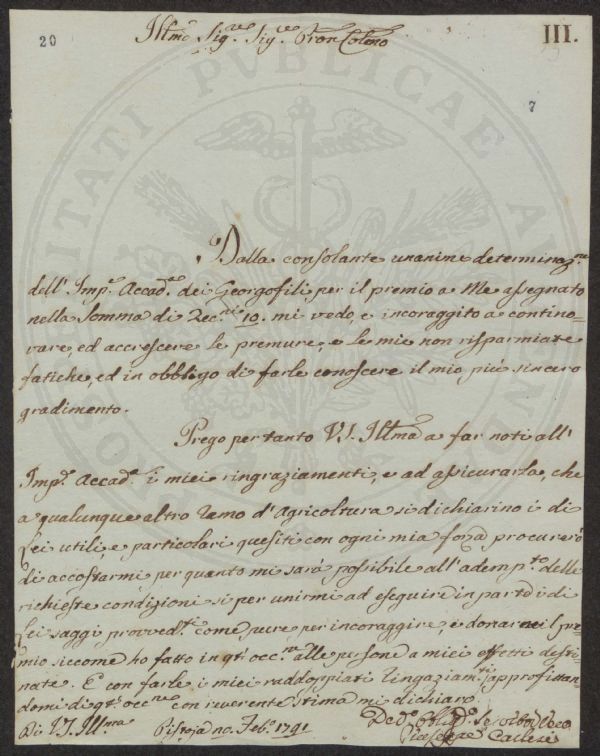 20
Illmo Sig.re Sig.re Pron Colmo
III.
7
Dalla consolante unanime determinaz.ne
dell' Imp.e Accad.a dei Georgofili per il premio a me assegnato
nella somma di Zec.ni 10. mi vedo, e incoraggito a contino-
vare, ed accrescere le premure, e le mie non risparmiate
fatiche, ed in obbligo di farle conoscere il mio più sincero
gradimento.
Prego per tanto V.S. Illma a far noti all'
Imp.e Accad.a i miei ringraziamenti, e ad assicurarla, che
a qualunque altro ramo d'Agricoltura si dichiarino i di
Lei utili, e particolari quesiti con ogni mia forza procurerò
di accostarmi per quanto mi sarà possibile all'ademp.to delle
richieste condizioni si per unirmi ad eseguire in parte i di
Lei saggi provved.ti come pure per incoraggire, e donare il pre-
mio siccome ho fatto in q.ta occ.ne alle persone a miei effetti desti-
nate. E con farle i miei raddoppiati ringraziam.ti approfittan-
domi di q.ta occ.ne con reverente stima mi dichiaro
Di V.S. Illma
Pistoja Feb.o 1791
De.o Obb.o Servitor Vero
PUBLICAE